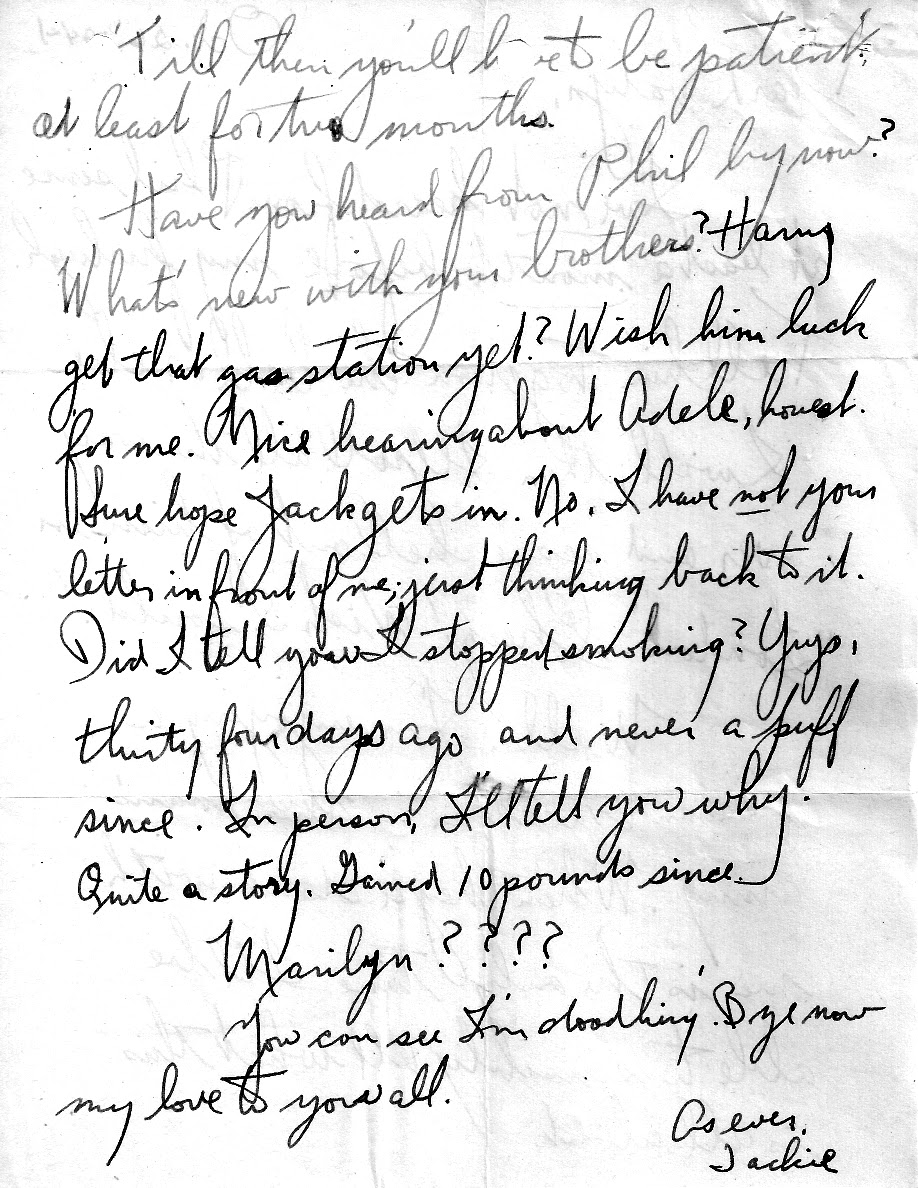 'Till then you'll b et be patient,
at least for two months.
Have you heard from Phil by now?
What's new with your brothers? Harry
get that gas station yet? Wish him luck
for me. Nice hearing about Adele, honest.
Sure hope Jack gets in. No, I have not your
letter in front of me; just thinking back to it.
Did I tell you I stopped smoking? Yups,
thirty four days ago and never a puff
since. In person, I'll tell you why.
Quite a story. Gained 10 pounds since.
Marilyn ? ? ? ?
You can see I'm doodling. Bye now
my love to you all.
As ever,
Jackie